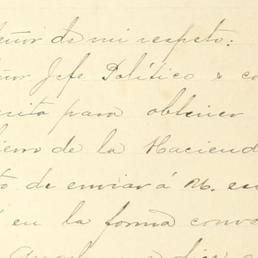 eñor de mi respeto:
ñor Jefe Político
rita para obtener
ierro de la Haciend
to de enviar á
en la forma conv